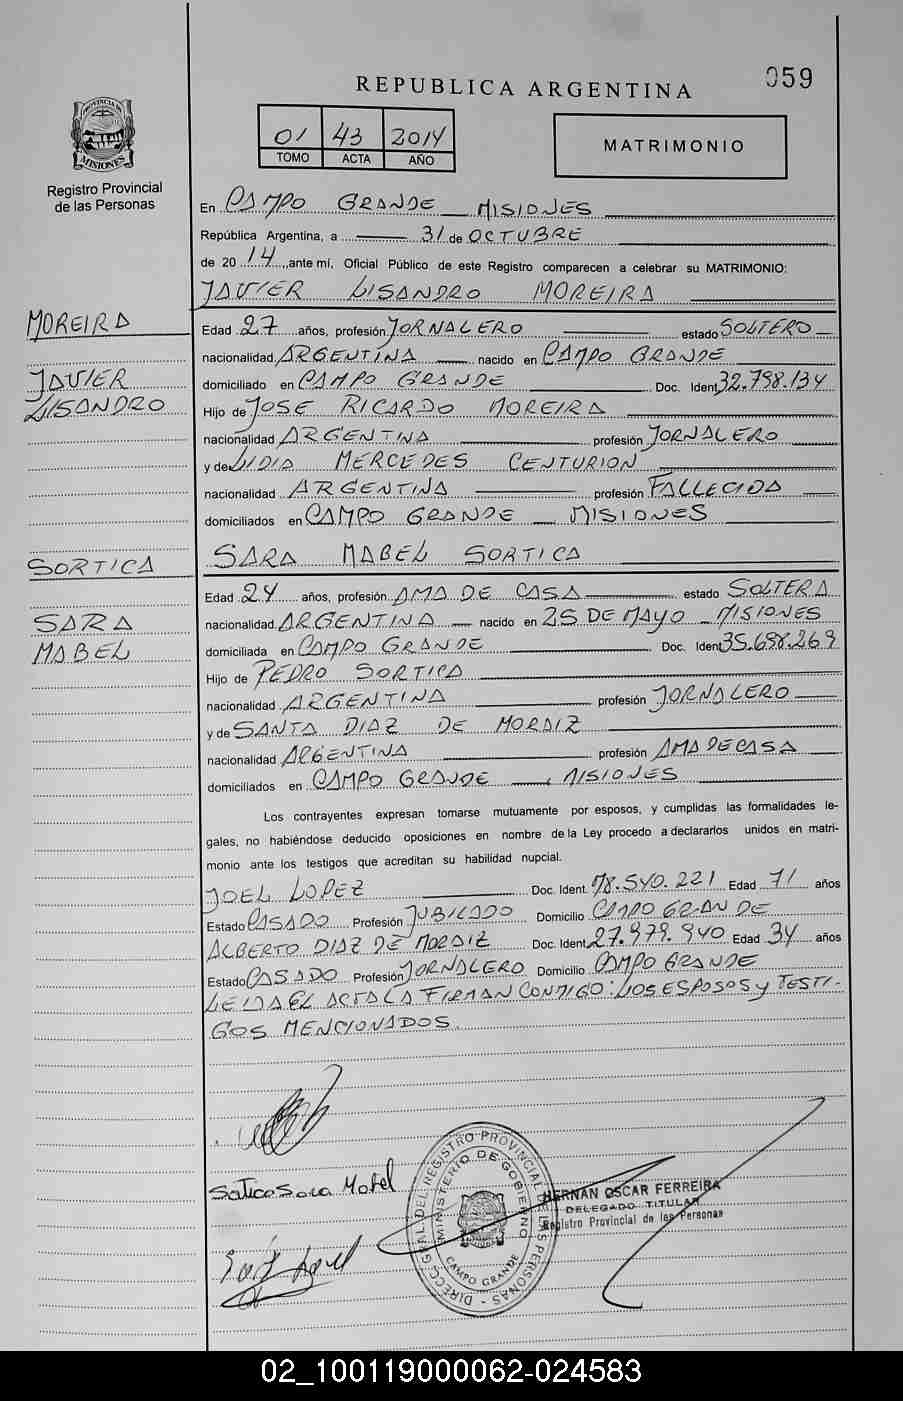 REPUBLICA ARGENTINA
059
01 43 2014
TOMO ACTA AÑO
MATRIMONIO
PROVINCIA DE
MISIONES
Registro Provincial
de las Personas
En CAMPO GRANDE MISIONES
República Argentina, a 31 de OCTUBRE
de 2014, ante mí, Oficial Público de este Registro comparecen a celebrar su MATRIMONIO:
JAVIER LISANDRO MOREIRA
MOREIRA
JAVIER
LISANDRO
Edad 27 años, profesión JORNALERO estado SOLTERO
nacionalidad ARGENTINA nacido en CAMPO GRANDE
domiciliado en CAMPO GRANDE Doc. Ident 32.798.134
Hijo de JOSE RICARDO MOREIRA
nacionalidad ARGENTINA profesión JORNALERO
y de LIDIA MERCEDES CENTURION
nacionalidad ARGENTINA profesión FALLECIDA
domiciliados en CAMPO GRANDE MISIONES
SORTICA
SARA
MABEL
SARA MABEL SORTICA
Edad 24 años, profesión AMA DE CASA estado SOLTERA
nacionalidad ARGENTINA nacido en 25 DE MAYO - MISIONES
domiciliada en CAMPO GRANDE Doc. Ident 35.698.269
Hijo de PEDRO SORTICA
nacionalidad ARGENTINA profesión JORNALERO
y de SANTA DIAZ DE MORAIZ
nacionalidad ARGENTINA profesión AMA DE CASA
domiciliados en CAMPO GRANDE , MISIONES
Los contrayentes expresan tomarse mutuamente por esposos, y cumplidas las formalidades le-
gales, no habiéndose deducido oposiciones en nombre de la Ley procedo a declararlos unidos en matri-
monio ante los testigos que acreditan su habilidad nupcial.
JOEL LOPEZ Doc. Ident. 540.221 Edad 71 años
Estado CASADO Profesión JUBILADO Domicilio CAMPO GRANDE
ALBERTO DIAZ DE MORAIZ Doc. Ident. 27.979.940 Edad 34 años
Estado CASADO Profesión JORNALERO Domicilio CAMPO GRANDE
LEIDA EL ACTA LA FIRMAN CONMIGO: LOS ESPOSOS y TESTI-
GOS MENCIONADOS.
Sortica Sara Mabel
DIRECC. GRAL. DEL REGISTRO PROVINCIAL DE LAS PERSONAS
MINISTERIO DE GOBIERNO
CAMPO GRANDE
HERNAN OSCAR FERREIRA
DELEGADO TITULAR
Registro Provincial de las Personas
02_100119000062-024583